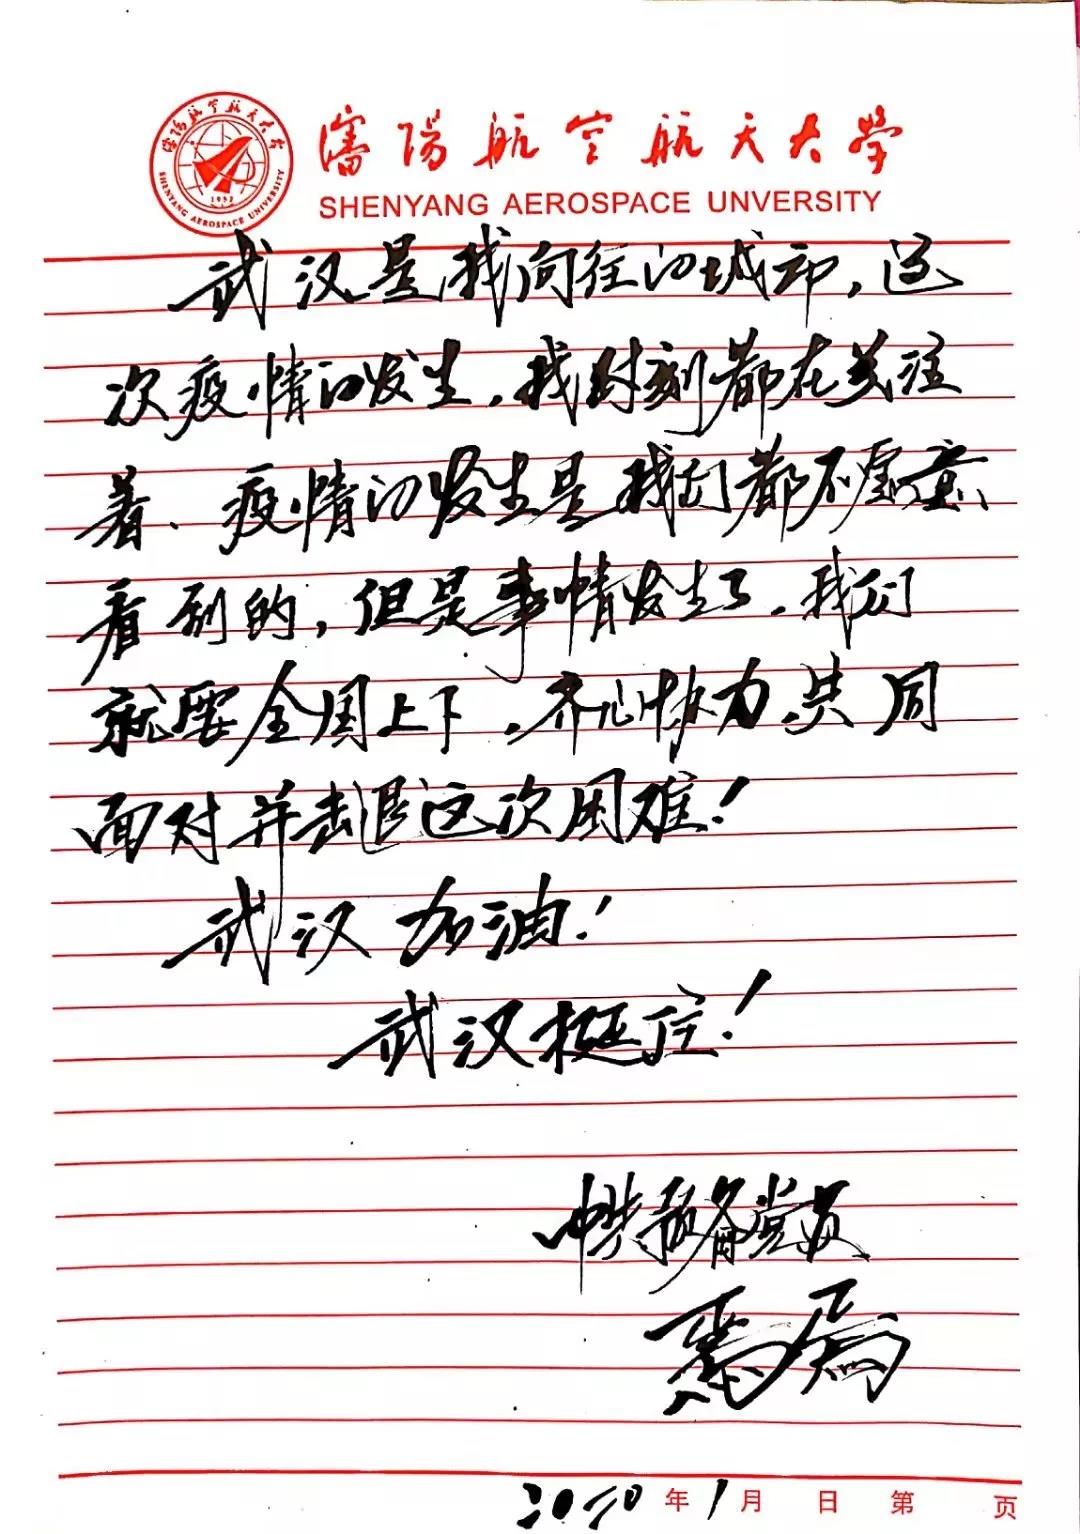 瀋陽航空航天大學
SHENYANG AEROSPACE UNVERSITY
SHENYANG AEROSPACE UNIVERSITY
1952
武汉是我向往的城市，这
次疫情的发生，我时刻都在关注
着．疫情的发生是我们都不愿意
看到的，但是事情发生了．我们
就要全国上下，齐心协力，共同
面对并击退这次困难！
武汉加油！
武汉挺住！
中共预备党员
2020年1月 日 第 页